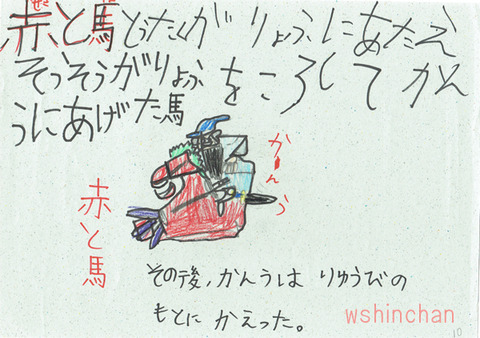 赤と馬とうたくがりょふにあたえ
そうそうがりょふをころしてかん
うにあげた馬
かんう
赤と馬
その後、かんうは りゅうびの
もとに かえった。
wshinchan
10